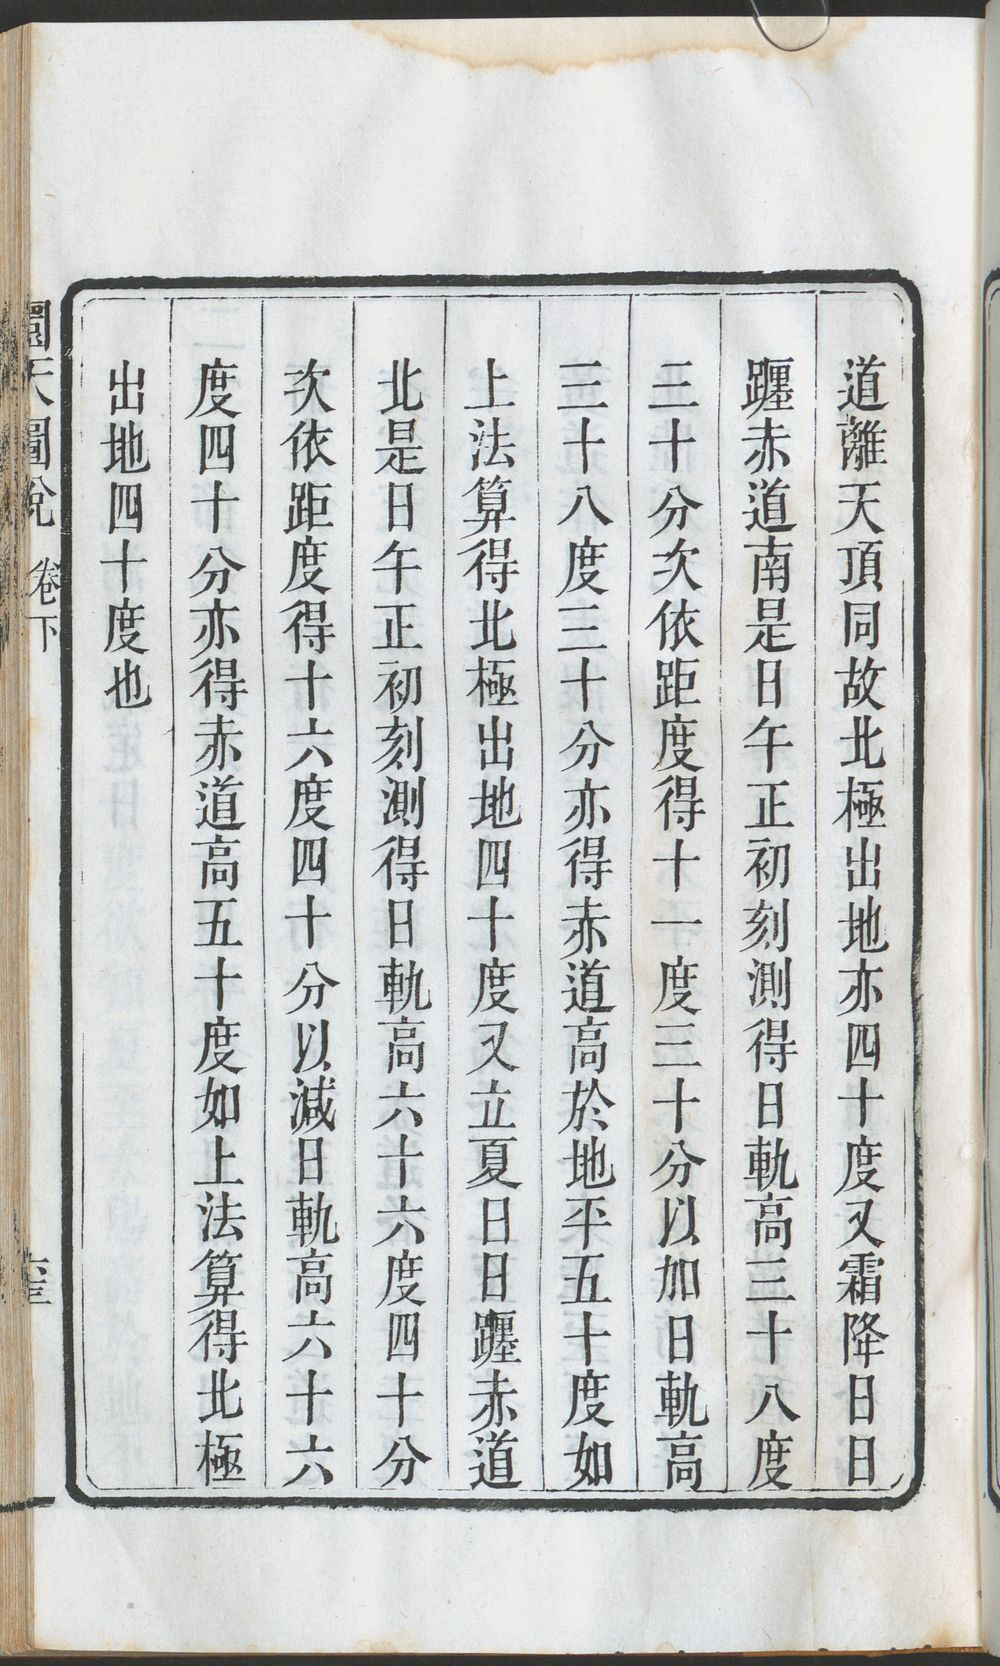 道離天頂同故北極出地亦四十度又霜降日日
躔赤道南是日午正初刻測得日軌高三十八度
三十分次依距度得十一度三十分以加日軌高
三十八度三十分亦得赤道高於地平五十度如
上法算得北極出地四十度又立夏日日躔赤道
北是日午正初刻測得日軌高六十六度四十分
次依距度得十六度四十分以減日軌高六十六
度四十分亦得赤道高五十度如上法算得北極
出地四十度也
圜天圖說 卷下